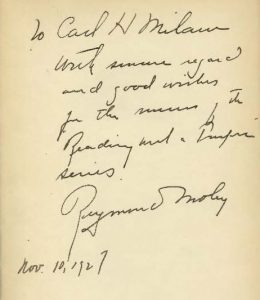 To Carl H Milam
With sincere regard
and good wishes
for the success of the
Reading with a Purpose
series.
Raymond Moley
Nov. 10, 1927